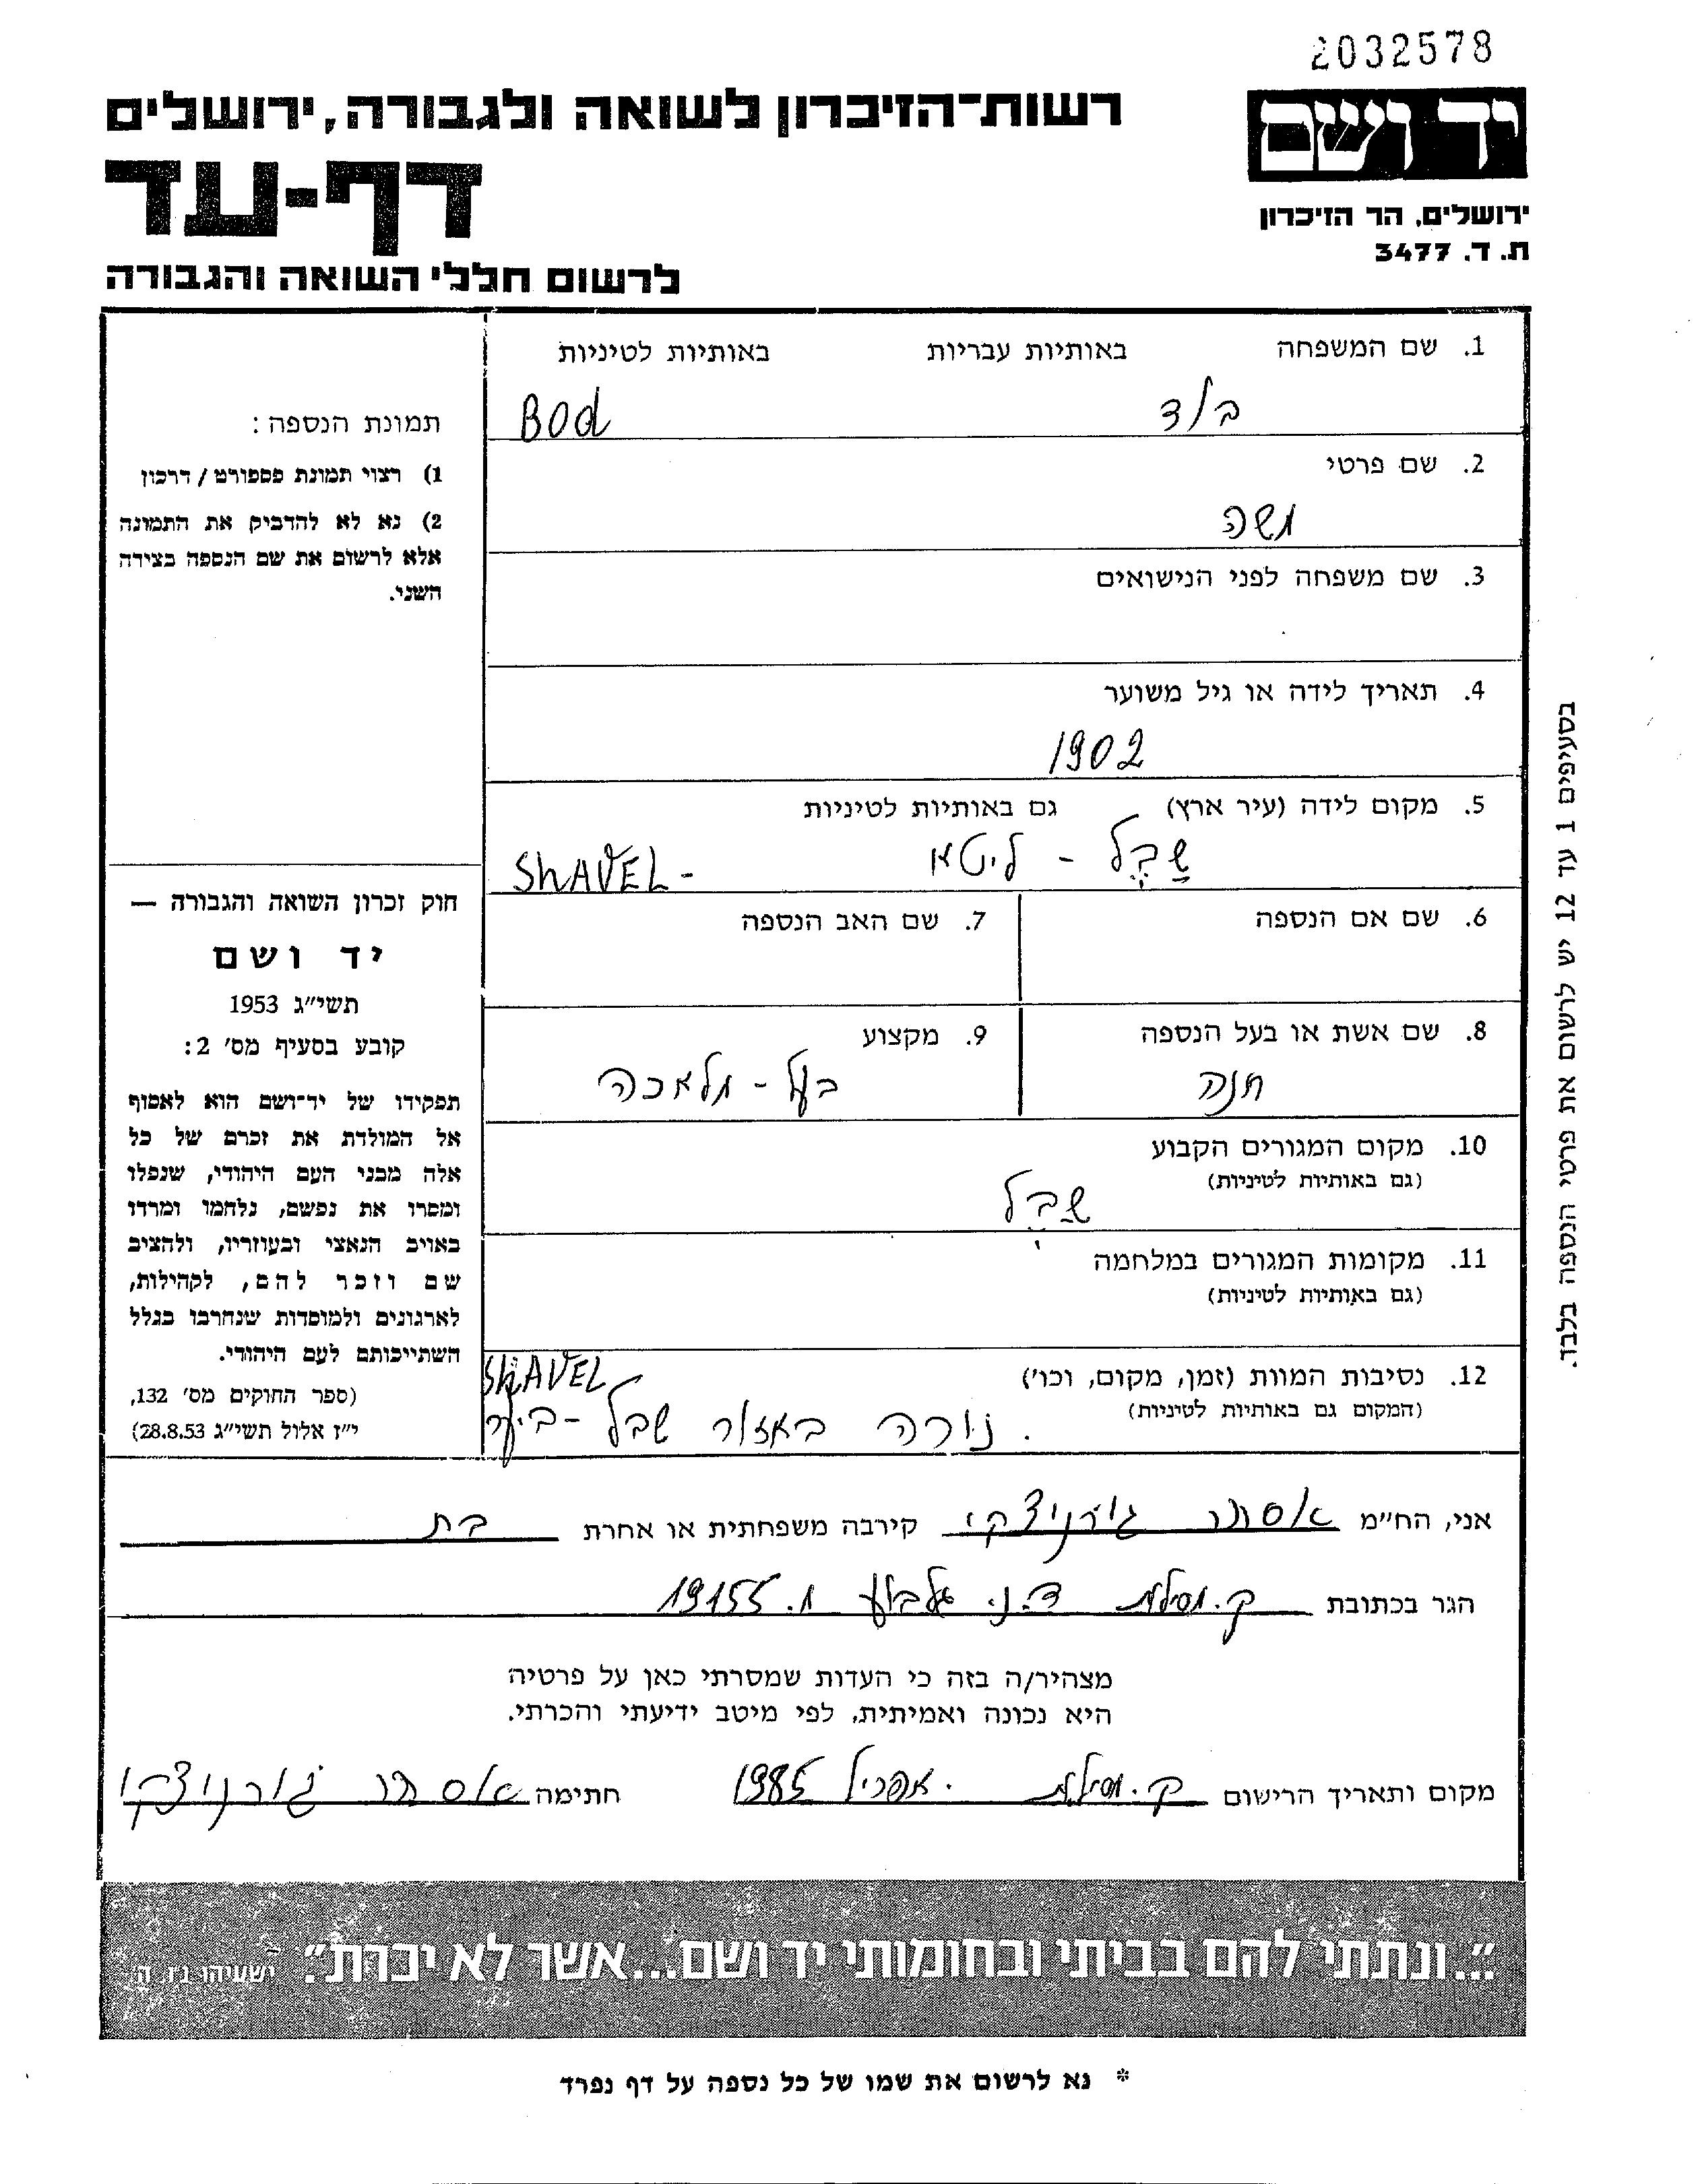 2032578
רשות־הזיכרון לשואה ולגבורה, ירושלים
יד ושם
דף-עד
ירושלים, הר הזיכרון
ת. ד. 3477
לרשום חללי השואה והגבורה
1. שם המשפחה באותיות עבריות באותיות לטיניות
בוד BOd
2. שם פרטי
משה
3. שם משפחה לפני הנישואים
4. תאריך לידה או גיל משוער
1902
5. מקום לידה (עיר ארץ) גם באותיות לטיניות
שַבֶל - ליטא SHAVEL-
6. שם אם הנספה 7. שם האב הנספה
8. שם אשת או בעל הנספה 9. מקצוע
חנה בעל-מלאכה
10. מקום המגורים הקבוע
(גם באותיות לטיניות)
שַבֶל
11. מקומות המגורים במלחמה
(גם באותיות לטיניות)
12. נסיבות המוות (זמן, מקום, וכו')
(המקום גם באותיות לטיניות)
SHAVEL
נורה באזור שבל - ביער
תמונת הנספה:
1) רצוי תמונת פספורט / דרכון
2) נא לא להדביק את התמונה
אלא לרשום את שם הנספה בצידה
השני.
חוק זכרון השואה והגבורה —
יד ושם
תשי״ג 1953
קובע בסעיף מס' 2:
תפקידו של יד־ושם הוא לאסוף
אל המולדת את זכרם של כל
אלה מבני העם היהודי, שנפלו
ומסרו את נפשם, נלחמו ומרדו
באויב הנאצי ובעוזריו, ולהציב
שם וזכר להם, לקהילות,
לארגונים ולמוסדות שנחרבו בגלל
השתייכותם לעם היהודי.
(ספר החוקים מס' 132,
י״ז אלול תשי״ג 28.8.53)
בסעיפים 1 עד 12 יש לרשום את פרטי הנספה בלבד.
אני, הח״מ אסתר גורניצקי קירבה משפחתית או אחרת בת
הגר בכתובת ק. מסילות ד.נ. גלבוע מ. 19155
מצהיר/ה בזה כי העדות שמסרתי כאן על פרטיה
היא נכונה ואמיתית, לפי מיטב ידיעתי והכרתי.
מקום ותאריך הרישום ק. מסילות. אפריל 1985 חתימה אסתר גורניצקי
״...ונתתי להם בביתי ובחומותי יד ושם...אשר לא יכרת״. ישעיהו נ״ו, ה'
* נא לרשום את שמו של כל נספה על דף נפרד